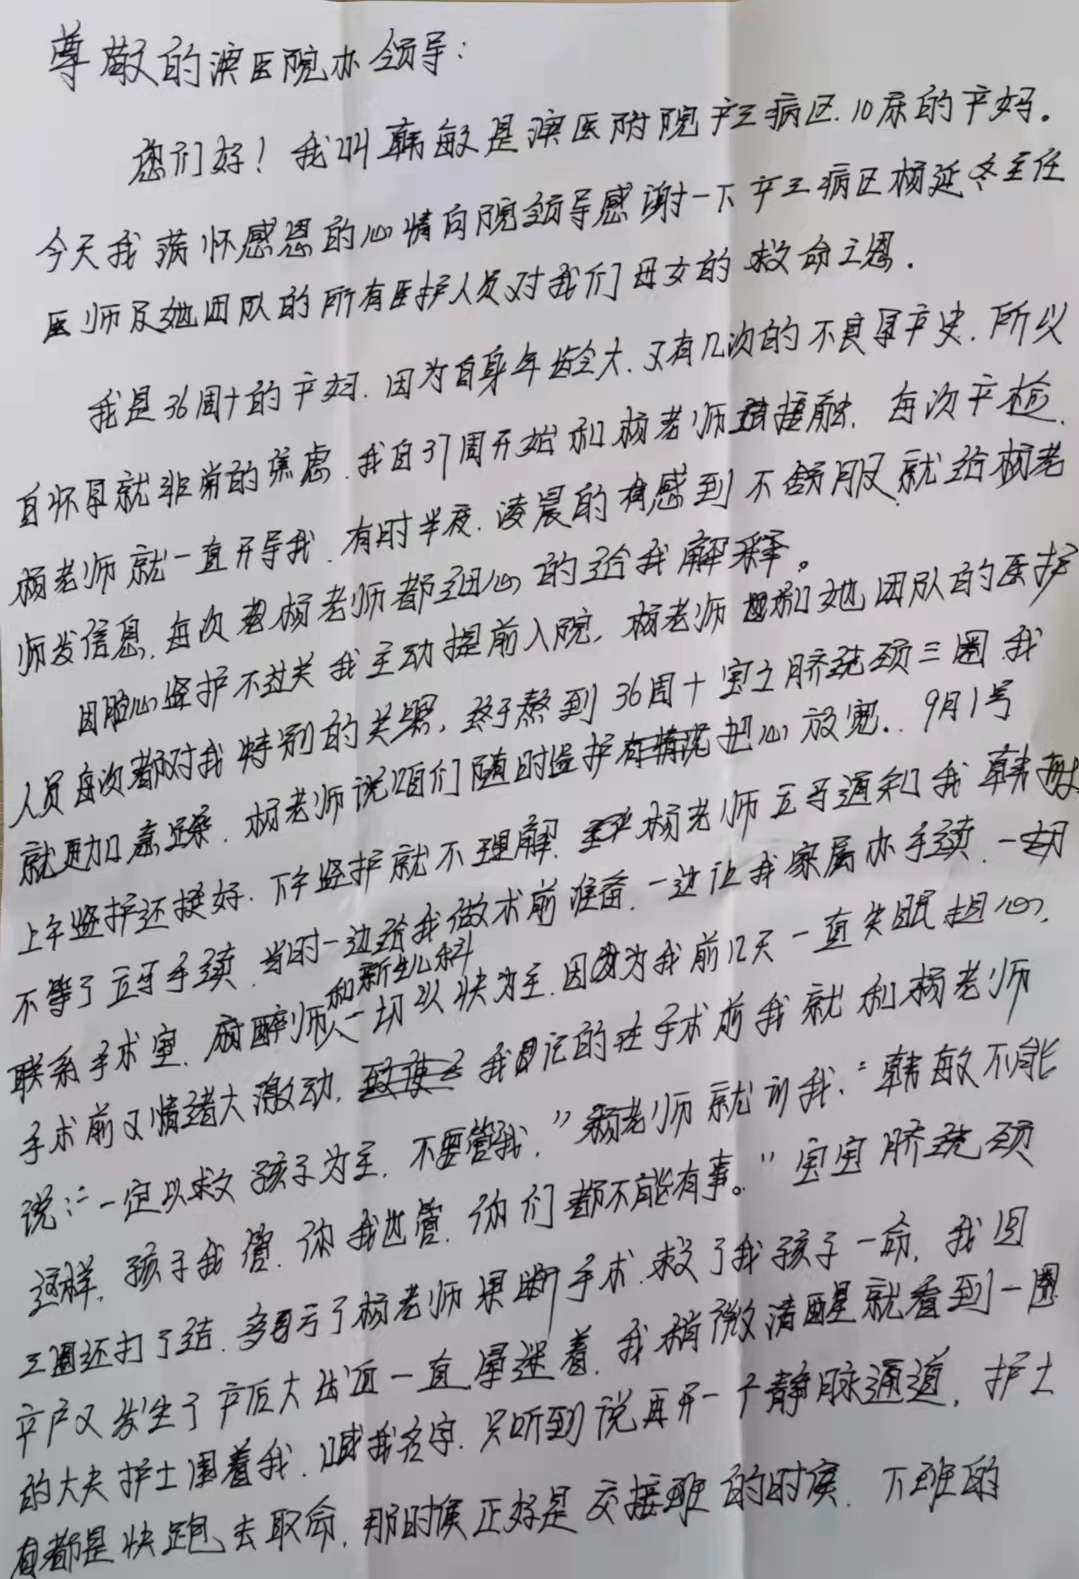 尊敬的滨医院办领导：
您们好！我叫韩敏是滨医附院产三病区.10床的产妈。
今天我满怀感恩的心情向院领导感谢一下产三病区杨延冬主任
医师及她团队的所有医护人员对我们母女的救命之恩.
我是36周+的产妇.因为自身年龄大.又有几次的不良孕产史.所以
自怀孕就非常的焦虑.我自37周开始和杨老师接触.每次产检.
杨老师就一直开导我.有时半夜.凌晨的有感到不舒服就给杨老
师发信息.每次杨老师都细心的给我解释。
因胎心监护不过关我主动提前入院.杨老师和她团队的医护
人员每次都对我特别的关照.终于熬到36周+宝宝脐绕颈三圈我
就更加急躁.杨老师说咱们随时监护把心放宽..9月1号
上午监护还挺好.下午监护就不理解.杨老师立马通知我韩敏
不等了立马手续.当时一边给我做术前准备.一边让我家属办手续.一切
和新生儿科
联系手术室.麻醉师一切以快为主.因为我前几天一直失眠担心.
手术前又情绪大激动.我记的在手术前我就和杨老师
说：“一定以救孩子为主.不要管我.”杨老师就训我：“韩敏不能
这样.孩子我管.你我也管.你们都不能有事。”宝宝脐绕颈
三圈还打了结.多亏了杨老师果断手术.救了我孩子一命.我因
产户又发生了产后大出血一直昏迷着.我稍微清醒就看到一圈
的大夫护士围着我.喊我名字.只听到说再开一个静脉通道.护士
都是快跑去取命.那时候正好是交接班的时候.下班的